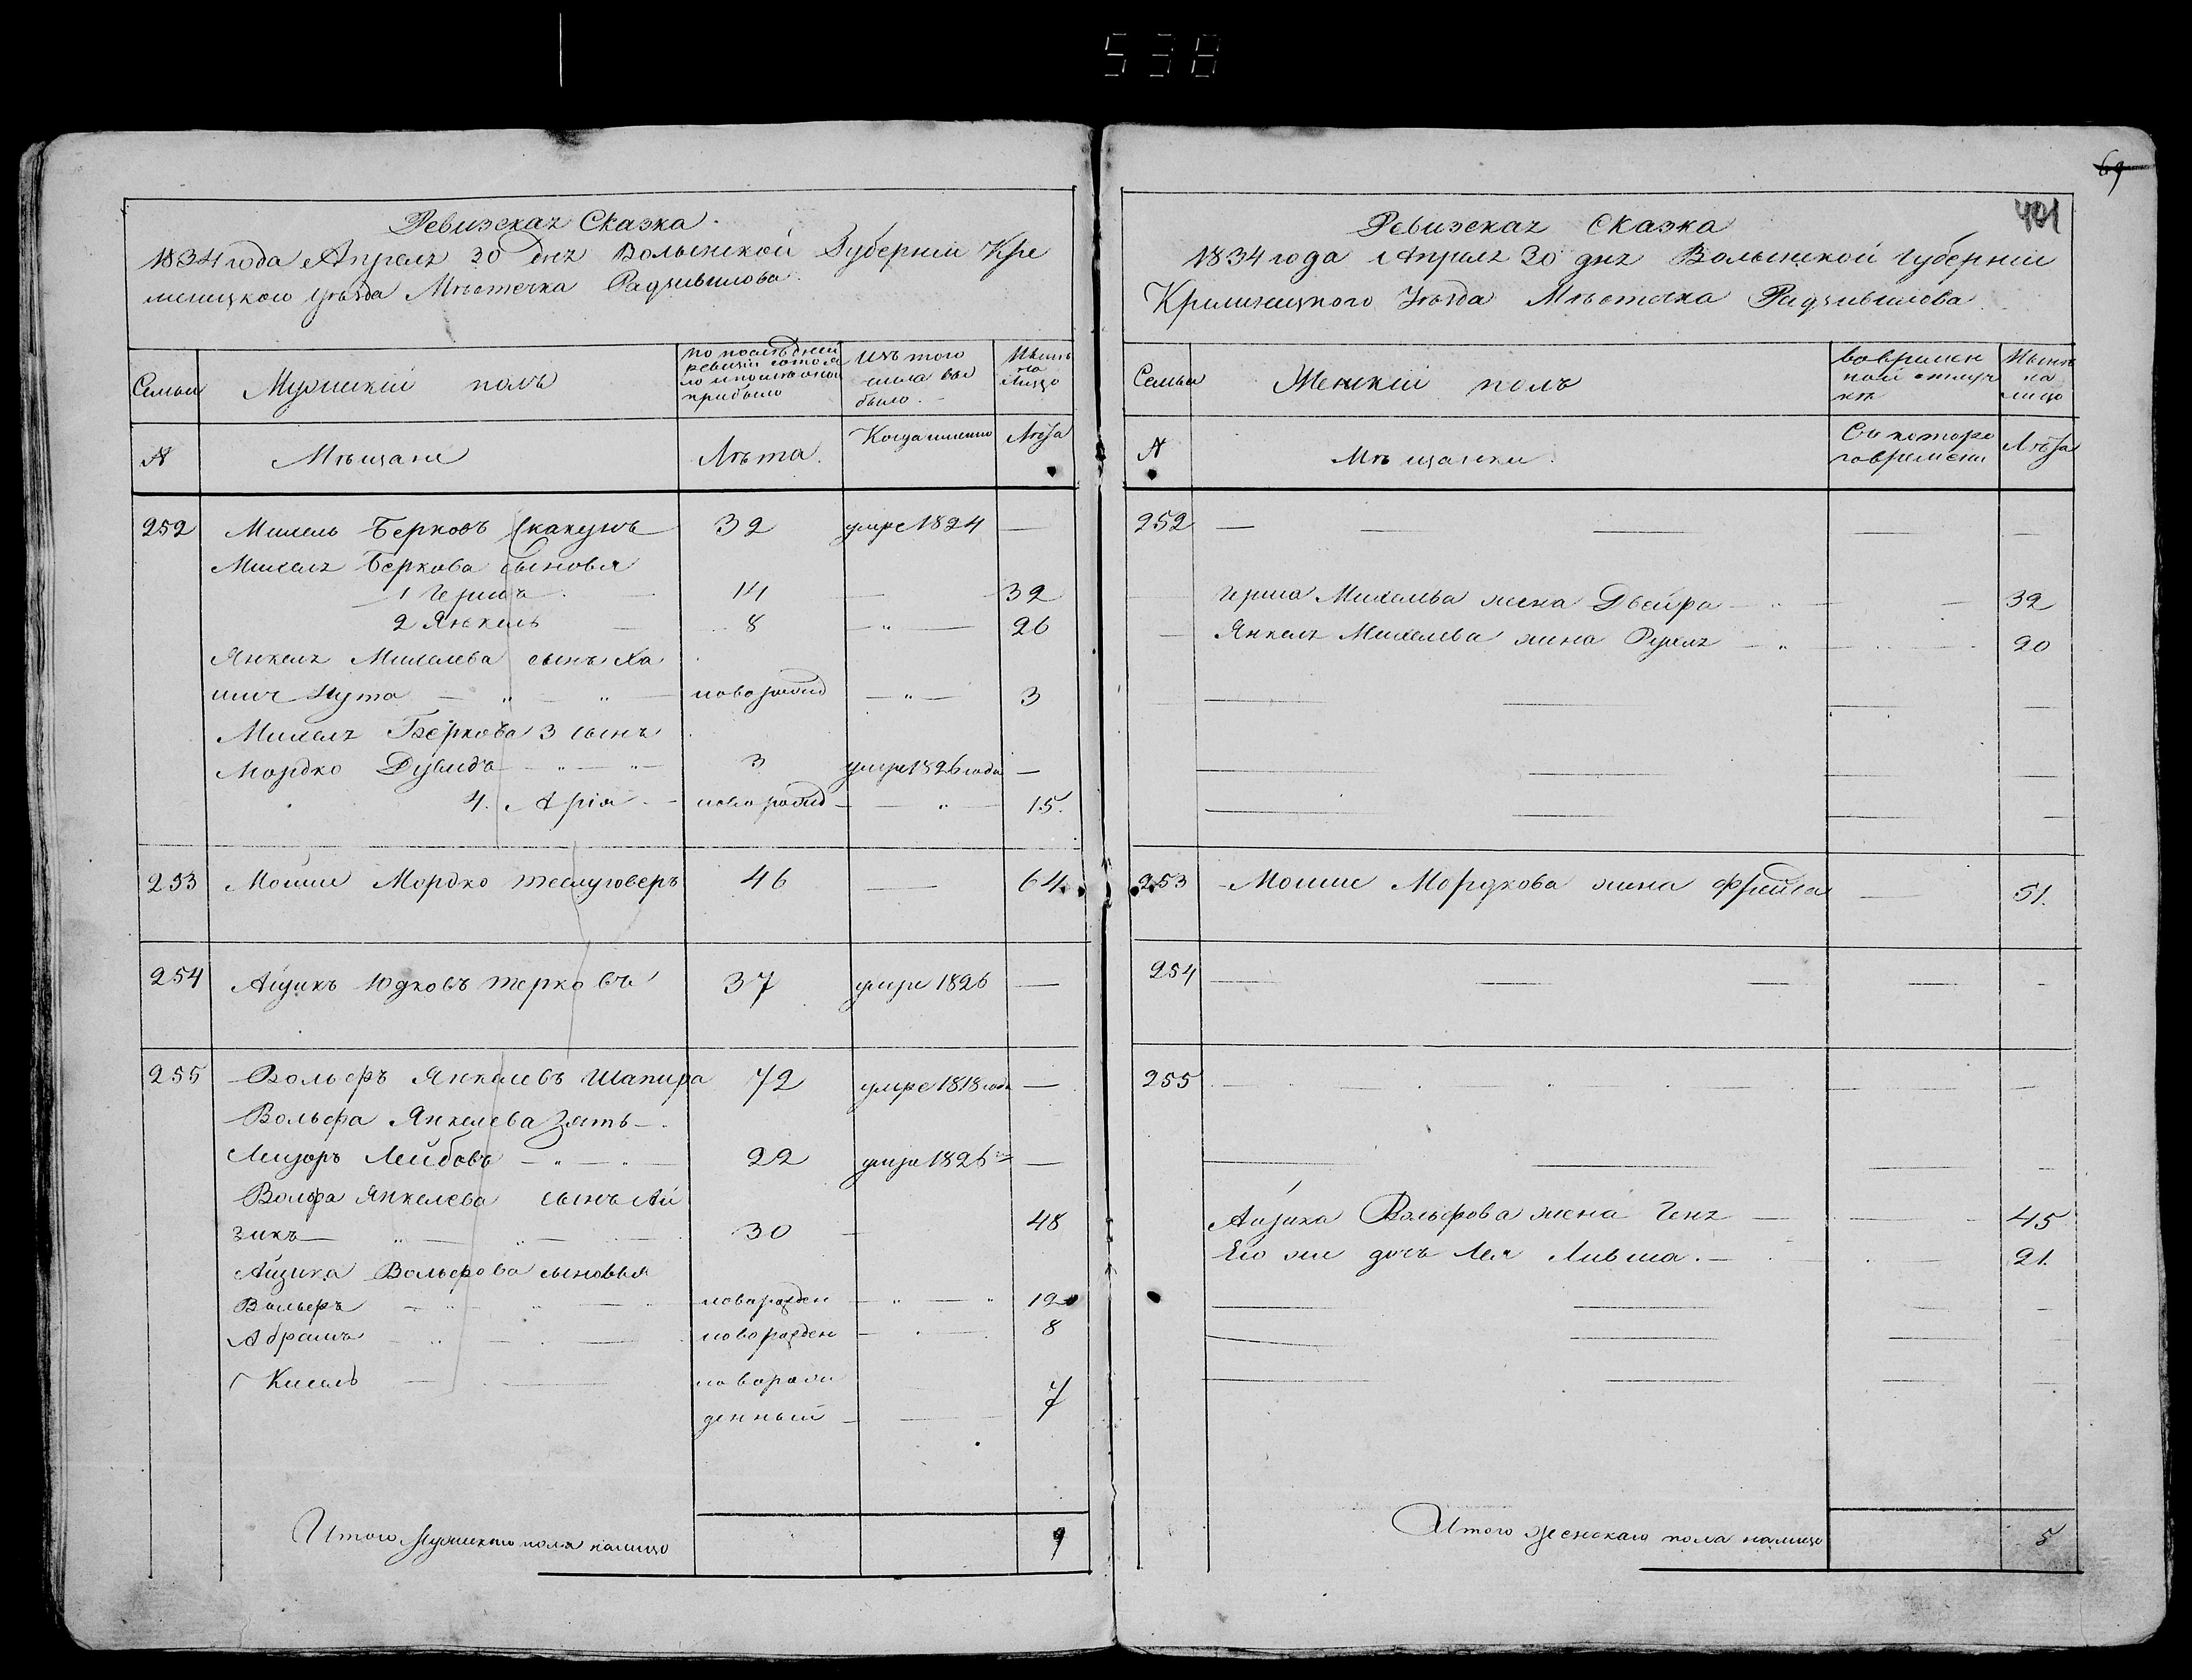 538
69
401
Ревизская Сказка
1834 года Апреля 30 дня Волынской Губернии Кре
менецкого уѣзда Мѣстечка Радзивилова
Семьи
Мужескій полъ
по послѣдней ревизіи состоя
ло и послѣ оной
прибыло
Изъ того
числа вы
было
Нынѣ
на
лицо
№
Мѣщане
Лѣта
Когда именно
Лѣта
252 Михель Берковъ Скакунъ 32 умре 1824 —
Михеля Беркова сыновья
1 Гершъ 14 — 32
2 Янкель 8 — 26
Янкеля Михелева сынъ Ха
имъ Нута — новорожд — 3
Михеля Беркова 3 сынъ
Мордко Дувидъ 3 умре 1826 года —
4. Арія — новорожд — 15.
253 Мошко Мордко 46 — 64
254 Айзикъ Юдковъ 37 умре 1826 —
255 Вольфъ Янкелевъ Шапира 72 умре 1818 года —
Вольфа Янкелева Зять —
Лейзоръ Лейбовъ 22 умре 1826 —
Вольфа Янкелева сынъ Ай
зикъ — 30 — 48
Айзика Вольфова сыновья
Вольфъ новорожден — 12
Абрамъ новорожден — 8
Кисель — новорож
денный — 7
Итого мужеского пола налицо 9
Ревизская Сказка
1834 года Апреля 30 дня Волынской Губерніи
Кременецкого Уѣзда Мѣстечка Радзивилова
Семьи
Женскій полъ
во времен
ной отлуч
кѣ
Нынѣ
на
лицо
№
Мѣщанки
Съ которо
го времени
Лѣта
252 — — — — —
Герша Михелева жена Двейра — 32
Янкеля Михелева жена Рухля — 20
253 Мошко Мордкова жена Фрейга — 51.
254 — — — — —
255 — — — —
Айзика Вольфова жена Геня — 45
Его же дочь Лея Ливша. — 21.
Итого женскаго пола налицо 5